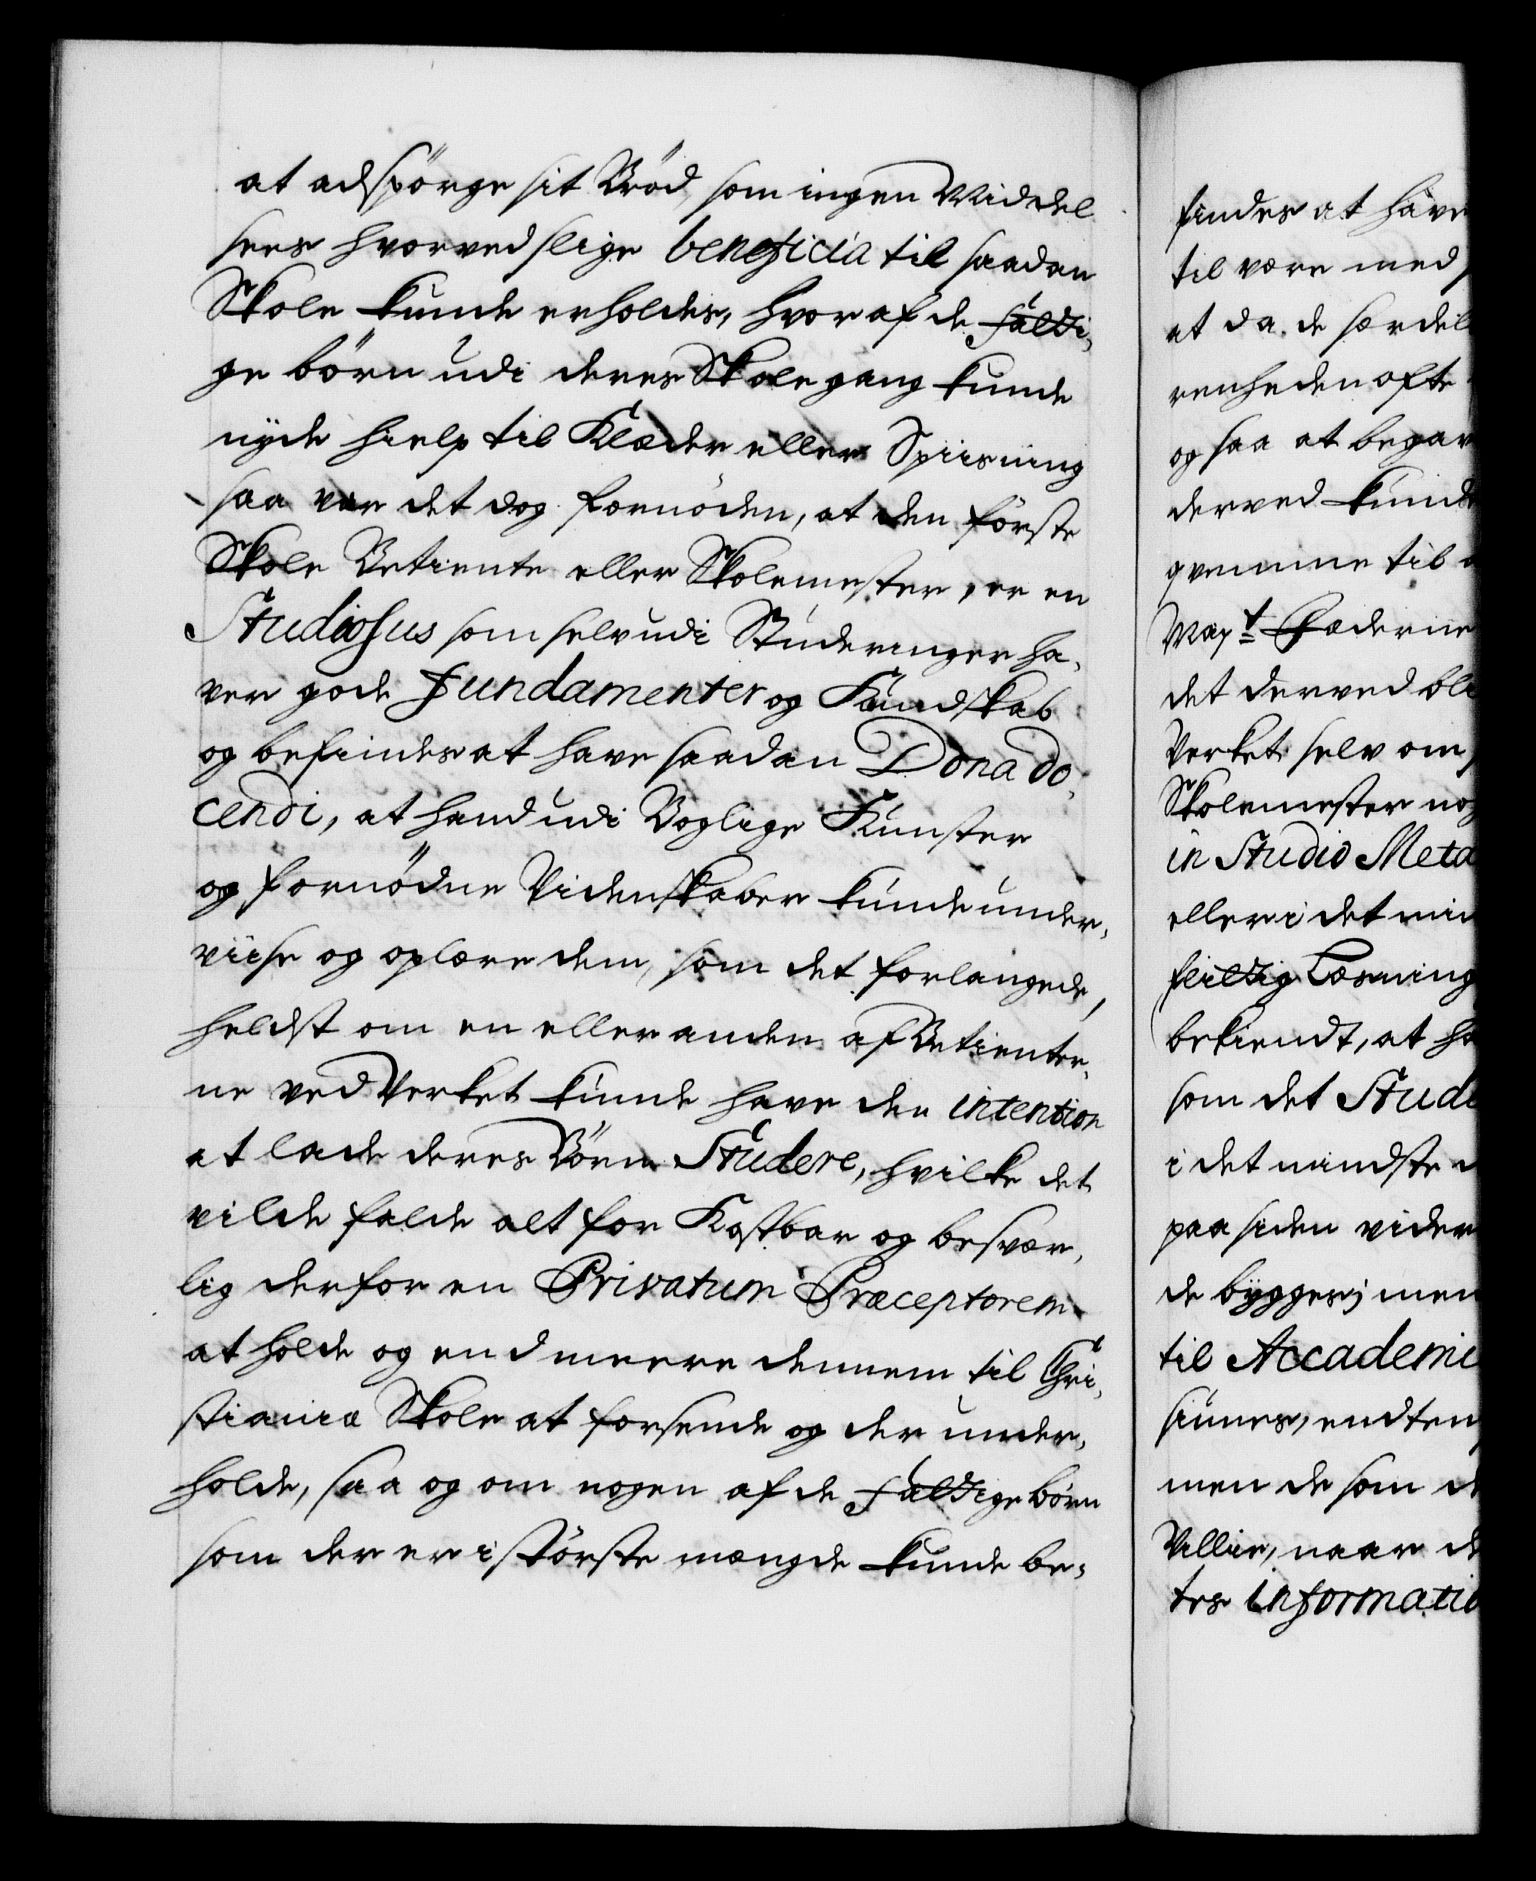 at adspörge sit Brød, som ingen Middel
sees hvorved slige beneficia til saadan
Skole kunde erholdes, hvoraf de fatti-
ge börn udi deres Skolegang kunde
nyde hielp til Klæder eller Spiisning
saa var det dog fornöden, at den förste
Skole Betiente eller Skolemester, er en
Studiosus som selv udi Studeringer ha-
ver gode Fundamenter og Kundskab
og befindes at have saadan Dona do-
cendi, at hand udi Boglige Kunster
og fornödne Videnskaber kunde under-
viise og oplære dem, som det forlangede,
heldst om en eller anden af Betiente-
ne ved Verket kunde have den intention
at lade deres Börn Studere, hvilke det
vilde falde alt for Kostbar og besvær-
lig derfor en Privatum Præceptorem
at holde og end meere dennem til Chri-
stianiæ Skole at forsende og der under-
holde, saa og om nogen af de fattige börn
som der er i störste mængde kunde be-
findes at have
til være med
at da de særdel
renheden ofte
og saa at begav
derved kunde
qvemme til
Mayt: Fæderne
det derved bli
Verket selv om
Skolemester nog
in Studio Meta
eller i det min
flittig Læsning
bekiendt, at ha
som det Stude
i det mindste
paa siden vider
de bygges; men
til Accademi
siunes, endten
men de som de
Villie, naar de
tes informatio